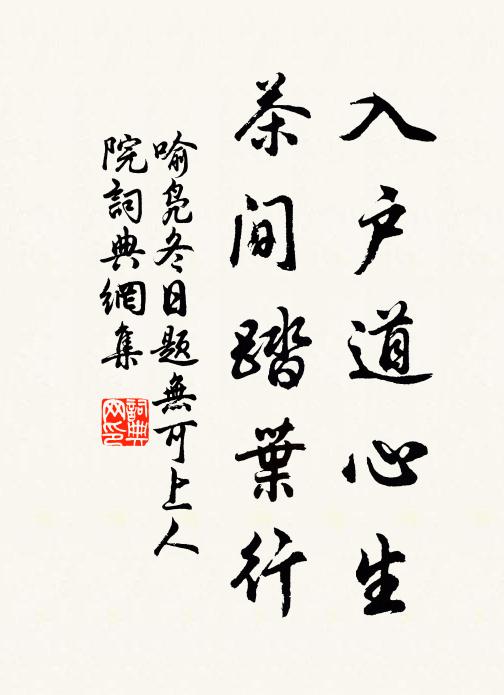 入户道心生
茶间踏葉行
喻凫冬日题無可上人
院詞典網集
詞典
网印